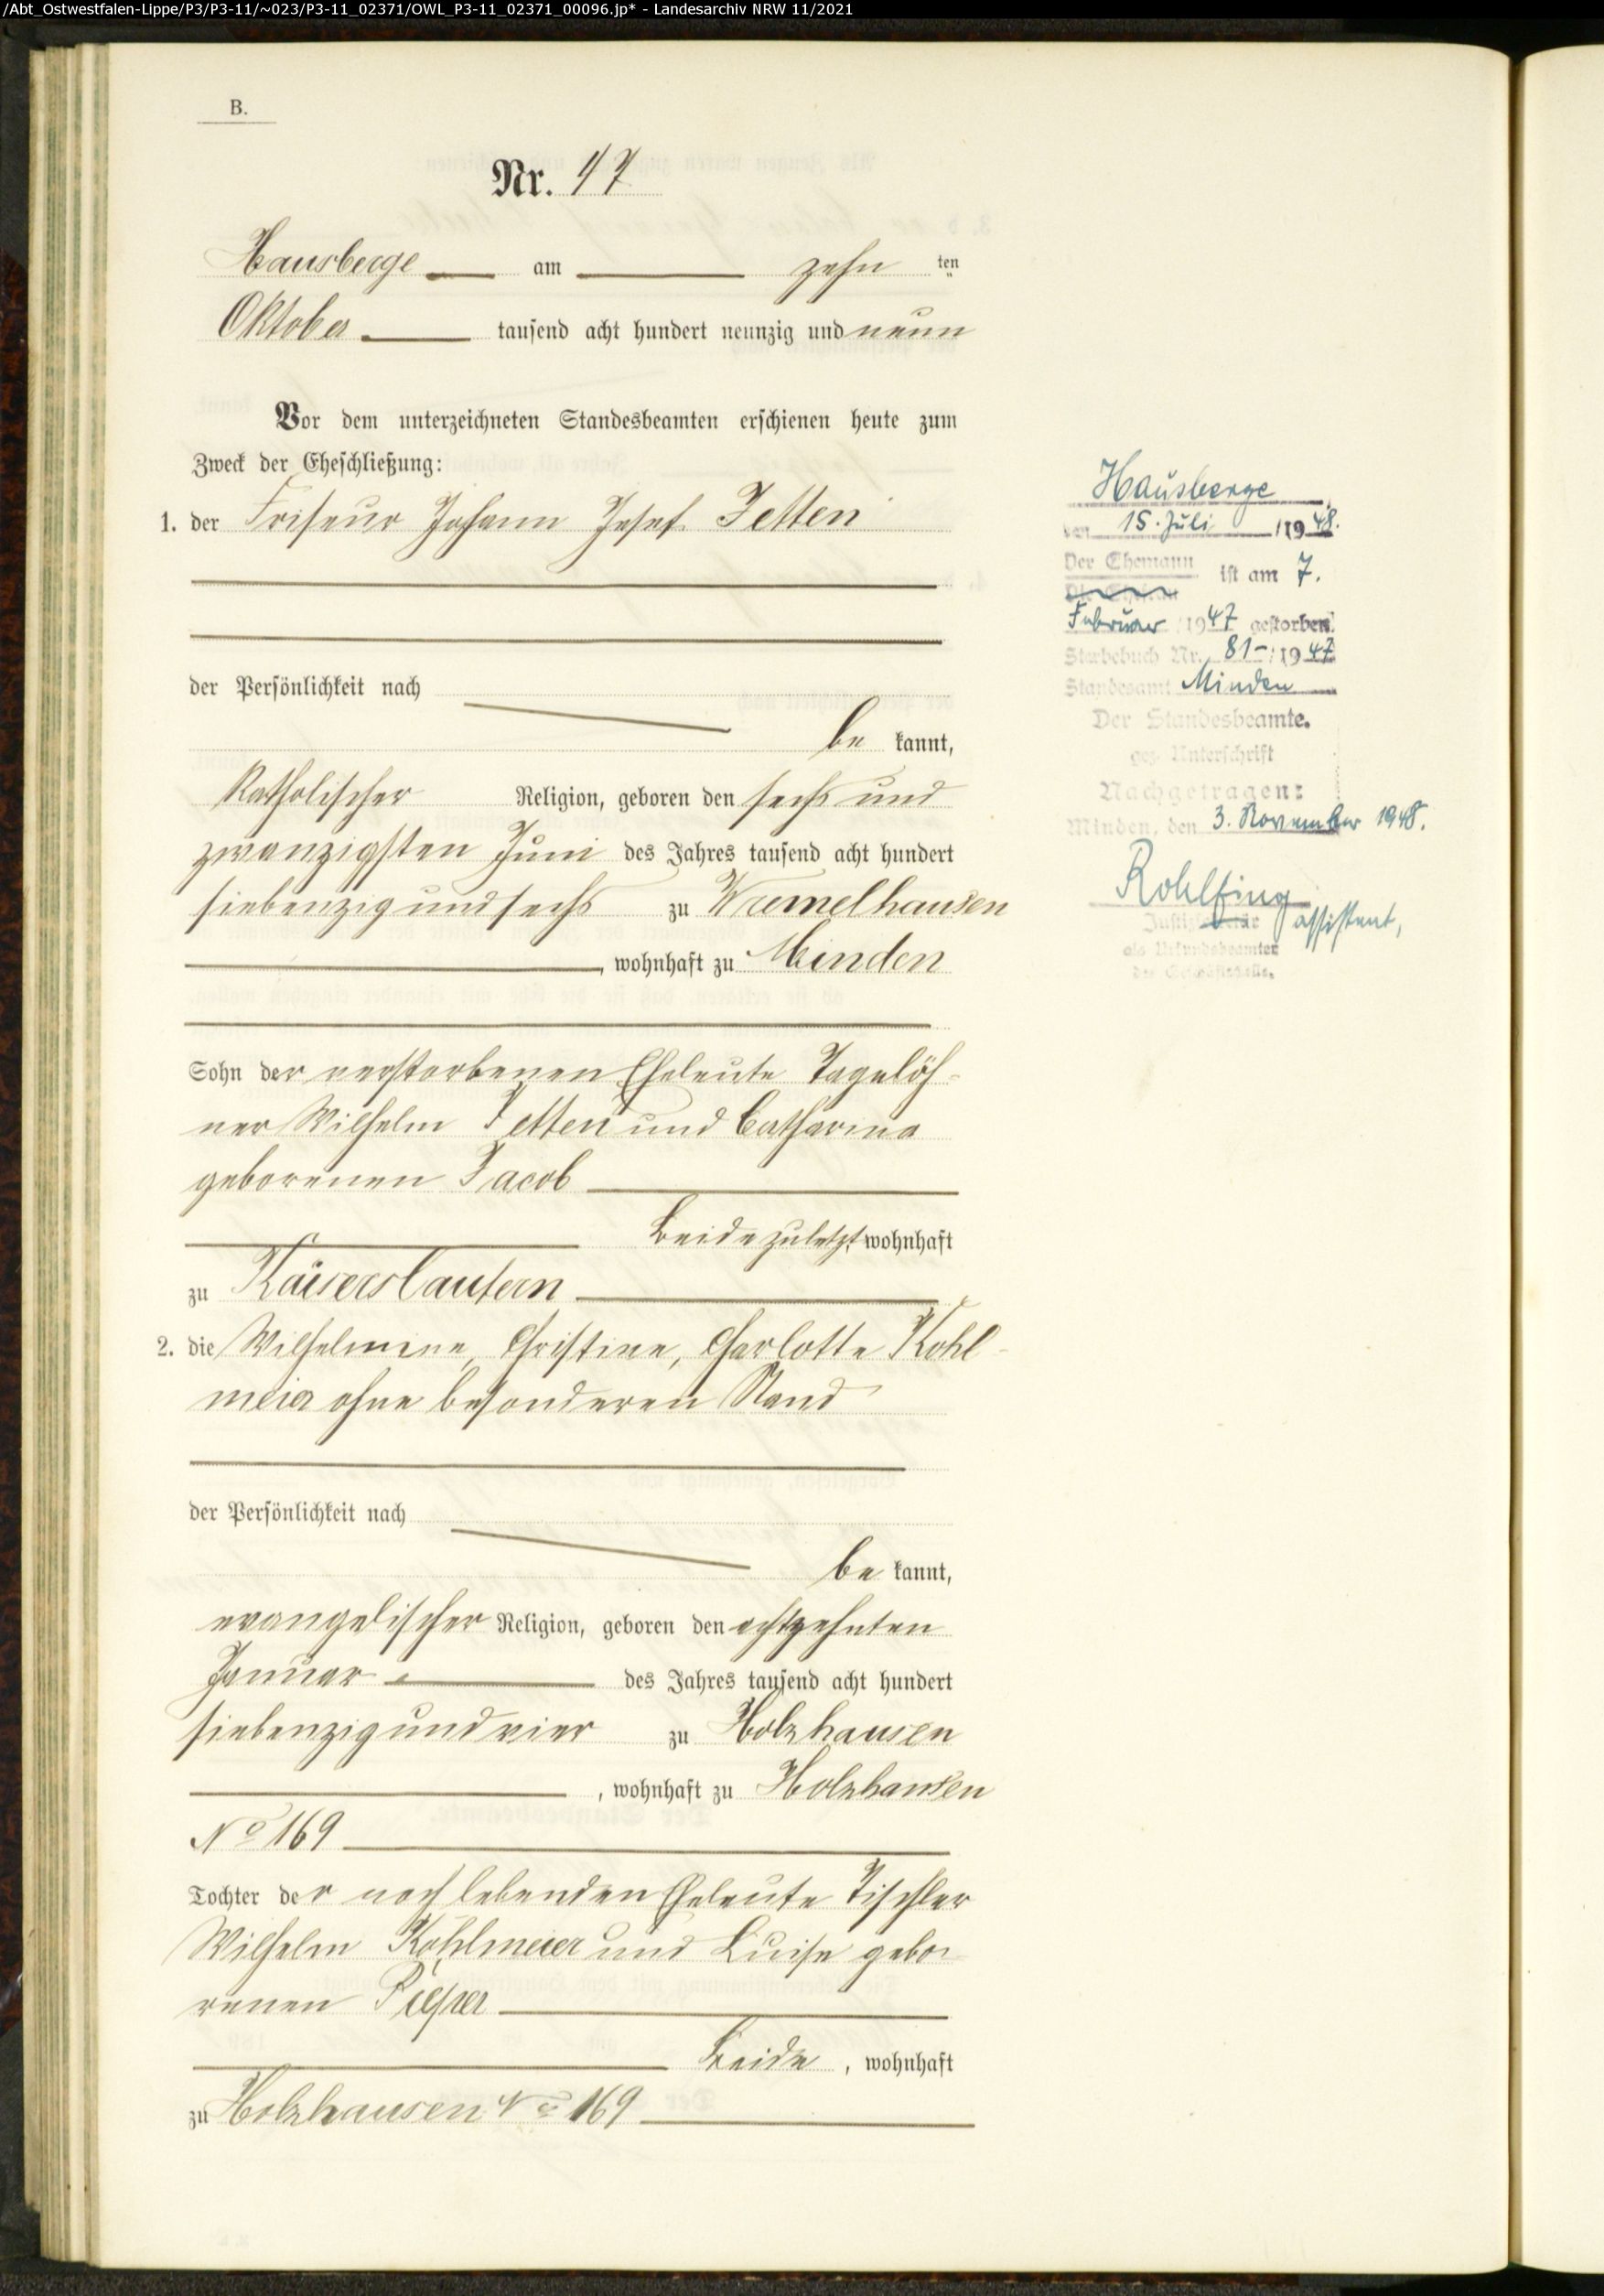 /Abt_Ostwestfalen-Lippe/P3/P3-11/~023/P3-11_02371/OWL_P3-11_02371_00096.jp* - Landesarchiv NRW 11/2021
B.
Nr. 47
Hausberge am zehn ten
Oktober tausend acht hundert neunzig und neun
Vor dem unterzeichneten Standesbeamten erschienen heute zum
Zweck der Eheschließung:
1. der Friseur Johann Josef Jetten
der Persönlichkeit nach
be kannt,
katholischer Religion, geboren den sechs und
zwanzigsten Juni des Jahres tausend acht hundert
siebenzig und sechs zu Wiemelhausen
, wohnhaft zu Minden
Sohn der verstorbenen Eheleute Tagelöh-
ner Wilhelm Jetten und Catharina
geborenen Jacob
Beide zuletzt wohnhaft
zu Kaiserslautern
2. die Wilhelmine, Christine, Charlotte Kohl-
meier ohne besonderen Stand
der Persönlichkeit nach
be kannt,
evangelischer Religion, geboren den achtzehnten
Januar des Jahres tausend acht hundert
siebenzig und vier zu Holzhausen
, wohnhaft zu Holzhausen
No 169
Tochter der noch lebenden Eheleute Tischler
Wilhelm Kohlmeier und Luise gebo-
renen Pieper
Beide, wohnhaft
zu Holzhausen No 169
Hausberge
den 15. Juli 1948.
Der Ehemann
ist am 7.
Februar 1947 gestorben.
Sterbebuch Nr. 81-/1947
Standesamt Minden
Der Standesbeamte.
gez. Unterschrift
Nachgetragen:
Minden, den 3. November 1948.
Rohlfing
Justiz assistent,
als Urkundsbeamter
der Geschäftsstelle.